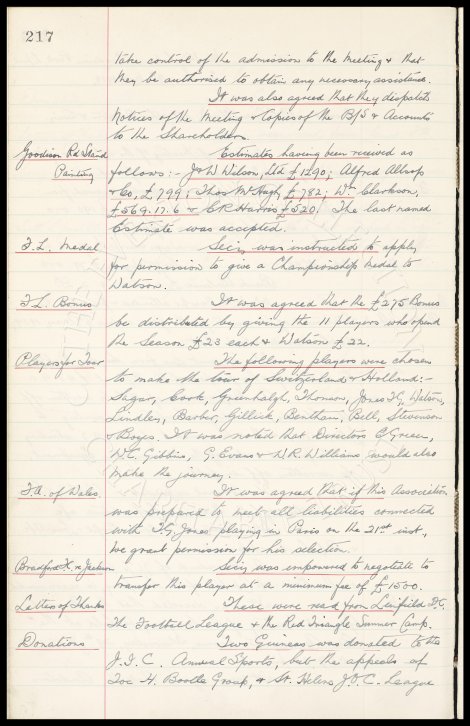 217
take control of the admission to the Meeting & that
they be authorised to obtain any necessary assistance.
It was also agreed that they dispatch
Notices of the Meeting & Copies of the B/S & Accounts
to the Shareholders.
Goodison Rd Stand
Painting
Estimates having been received as
follows:- J & W Wilson, Ltd £1290; Alfred Allsop
& Co, £799; Thos McHugh £782; Wm Clarkson,
£569.17.6 & C R Harris £520. The last named
Estimate was accepted.
F.L. Medal
Secy was instructed to apply
for permission to give a Championship medal to
Watson.
F.L. Bonus
It was agreed that the £275 Bonus
be distributed by giving the 11 players who opened
the Season £23 each & Watson £22.
Players for Tour
The following players were chosen
to make the tour of Switzerland & Holland:-
Sagar, Cook, Greenhalgh, Thomson, Jones T.G, Watson,
Lindley, Barber, Gillick, Bentham, Bell, Stevenson
& Boyes. It was noted that Directors E Green,
W.C. Gibbins, G. Evans & W.R. Williams would also
make the journey.
F.A. of Wales.
It was agreed that if this Association
was prepared to meet all liabilities connected
with T.G. Jones playing in Paris on the 21st inst,
we grant permission for his selection.
Bradford F.C. re Jackson
Secy was empowered to negotiate to
transfer this player at a minimum fee of £1500.
Letters of Thanks
These were read from Linfield F.C.
The Football League & the Red Triangle Summer Camp.
Donations
Two Guineas was donated to the
J.I.C. Annual Sports, but the appeals of
Toc H. Bootle Group, & St. Helens J.O.C. League